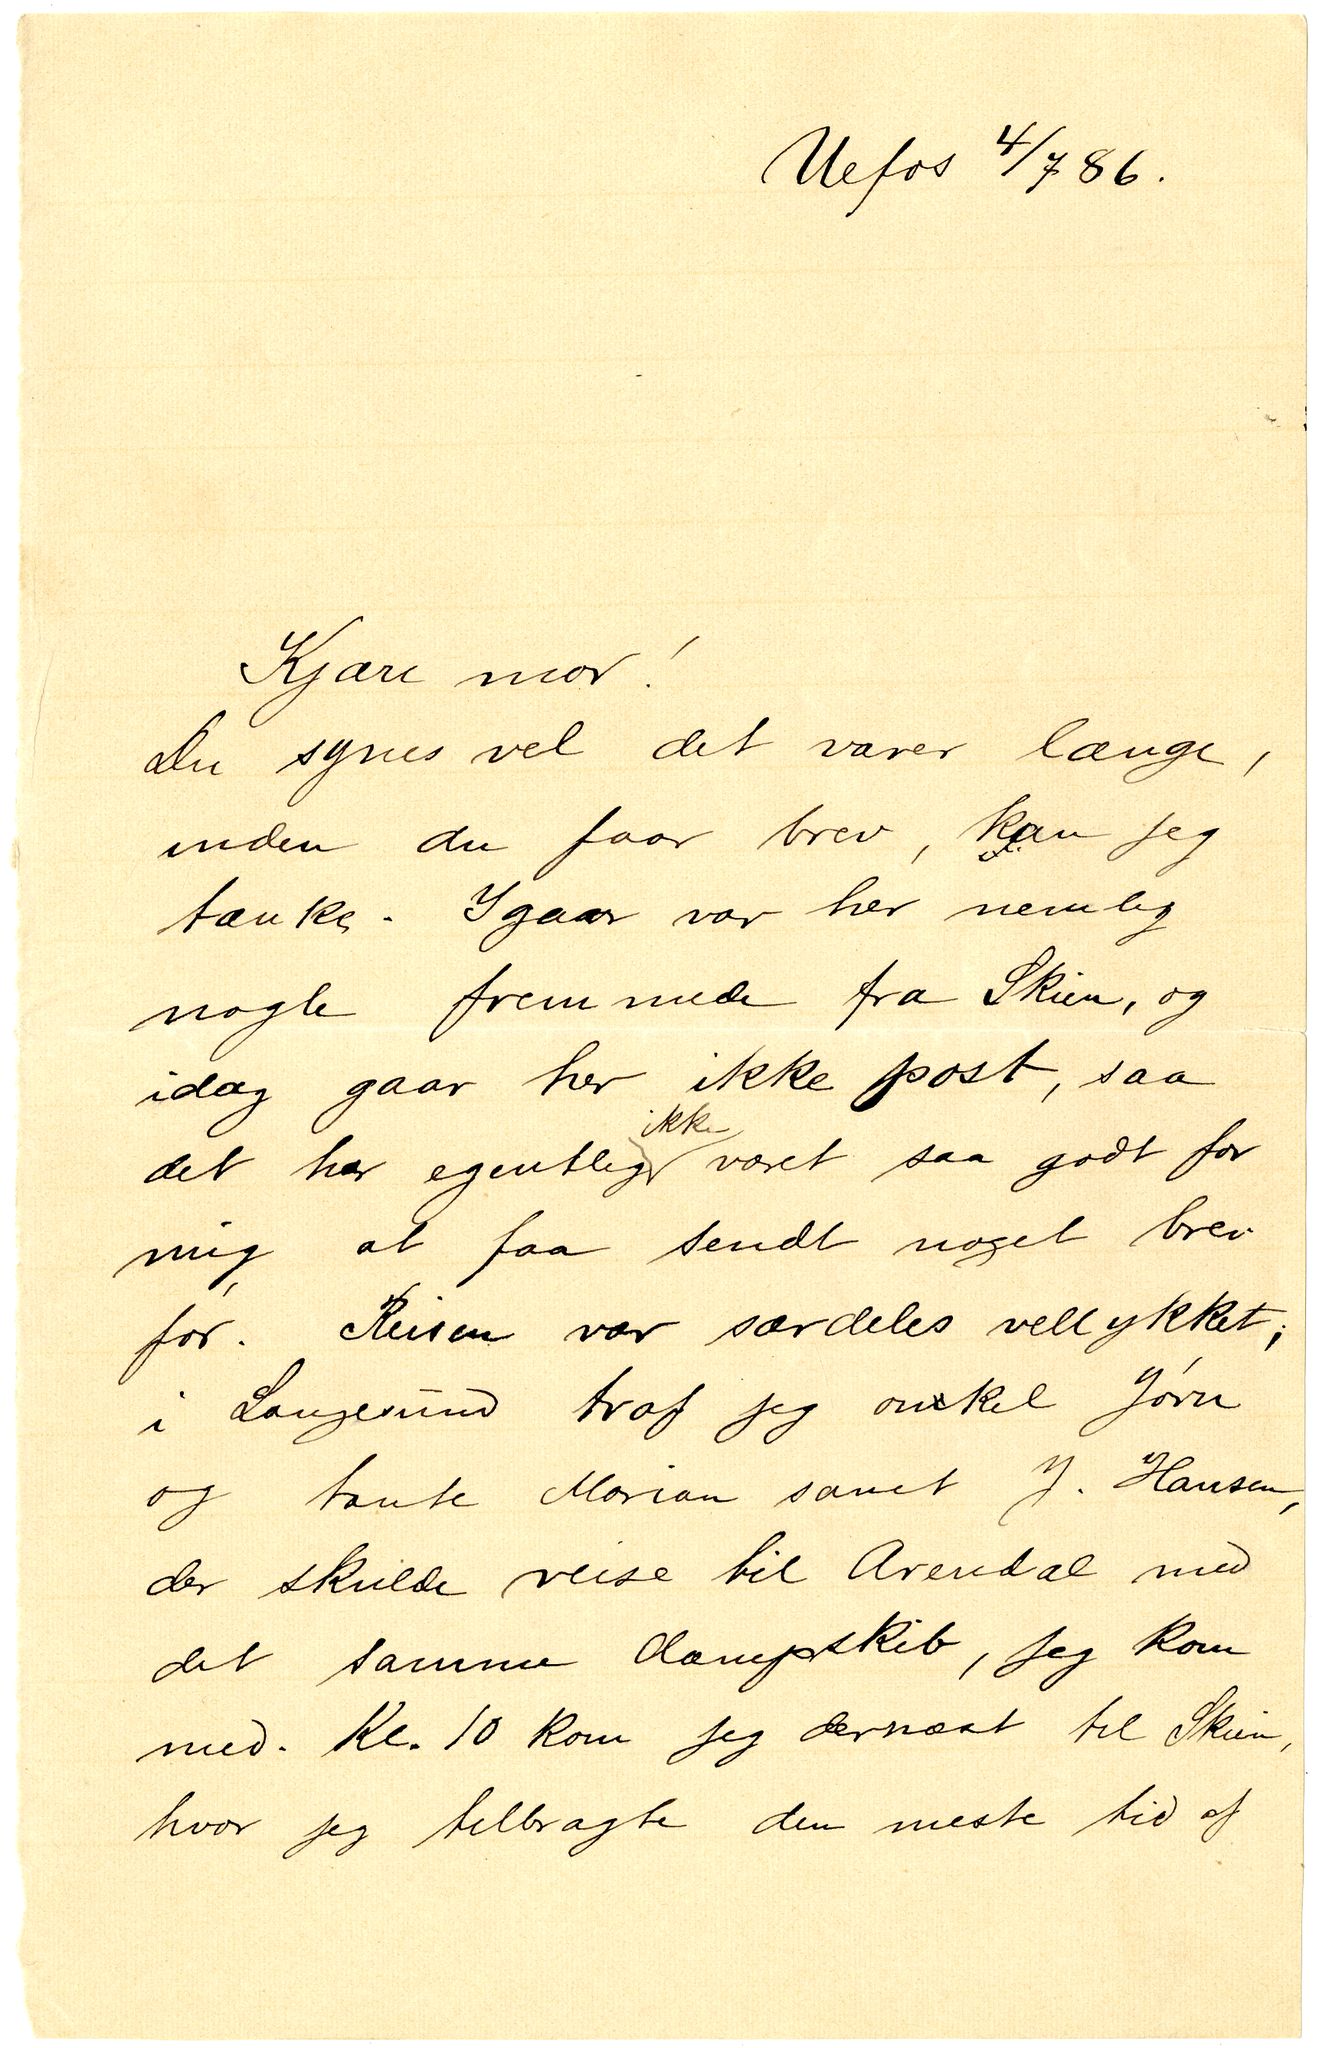 Uefos 4/7 86.
Kjære mor!
Du synes vel det varer længe,
inden du faar brev, kan jeg
tænke. Igaar var her nemlig
nogle fremmede fra Skien, og
idag gaar her ikke post, saa
det har egentlig ikke været saa godt for
mig at faa sendt noget brev
før. Reisen var særdeles vellykket;
i Langesund traf jeg onkel Jørn
og tante Marian samt J. Hansen,
der skulde reise til Arendal med
det samme dampskib, jeg kom
med. Kl. 10 kom jeg dernæst til Skien,
hvor jeg tilbragte den meste tid af